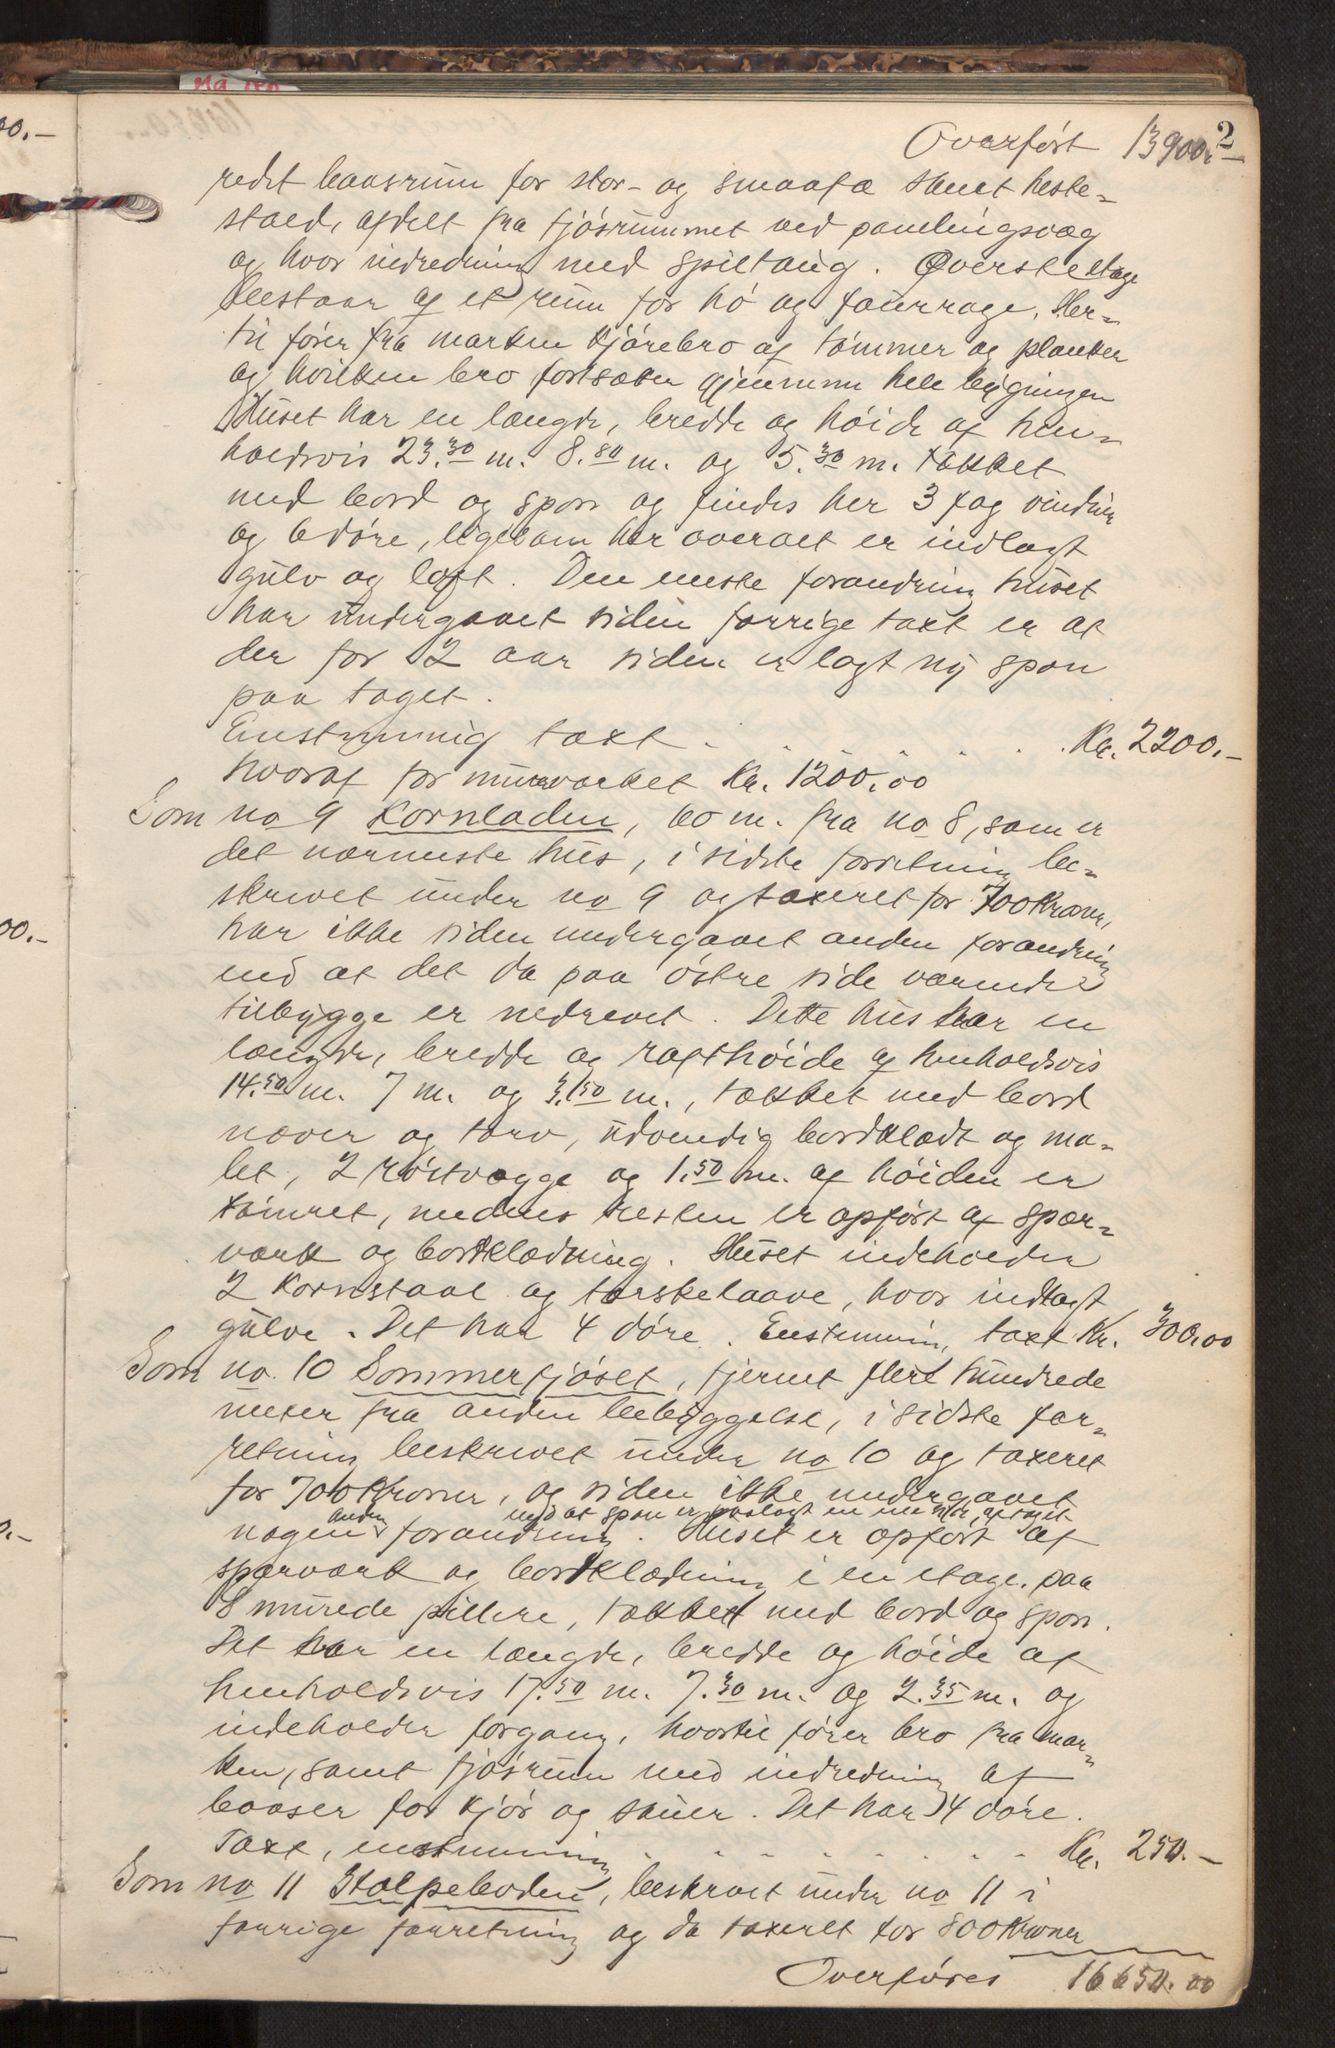 2
Overført 13900.-
redet baasrum for stor- og smaafæ samt heste-
stald, afdelt fra fjøsrummet ved panelingsvæg
og hvor indredning med spiltaug. Øverste etage
bestaar af et rum for hø og fourrage. Her-
til fører fra marken kjørebro af tømmer og planker
og hvilken bro fortsætter gjennem hele bygningen
Huset har en længde, bredde og høide af hen-
holdsvis 23.30 m. 8.80 m. og 5.30 m. tækket
med bord og spon og findes her 3 fag vinduer
og 6 døre, ligesom her overalt er indlagt
gulv og loft. Den eneste forandring huset
har undergaaet siden forrige taxt er at
der for 2 aar siden er lagt ny spon
paa taget.
Enstemmig taxt . . . . . . . Kr. 2200.-
hvoraf for murværket Kr. 1200.00
Som no 9 Kornladen, 60 m. fra no 8, som er
det nærmeste hus, i sidste forretning be-
skrevet under no 9 og taxeret for 700 Kroner,
har ikke siden undergaaet anden forandring
end at det da paa østre side værende
tilbygge er nedrevet. Dette hus har en
længde, bredde og rafthøide af henholdsvis
14.50 m. 7 m. og 3.50 m., tækket med bord
næver og torv, udvendig bordklædt og ma-
let, 2 røstvægge og 1.50 m. af høiden er
tømret, medens resten er opført af spær-
værk og bordklædning. Huset indeholder
2 Kornstaal og tærskelaave, hvor indlagt
gulve. Det har 4 døre. Enstemmig taxt Kr. 300.00
Som no. 10 Sommerfjøset, fjernet flere hundrede
meter fra anden bebyggelse, i sidste for-
retning beskrevet under no 10 og taxeret
for 700 Kroner, og siden ikke undergaaet
anden end at spon er paalagt en side af taget
nogen forandring. Huset er opført af
spærværk og bordklædning i en etage paa
8 murede pillere, tækket med bord og spon.
Det har en længde, bredde og høide af
henholdsvis 17.50 m. 7.30 m. og 2.35 m. og
indeholder forgang, hvortil fører bro fra mar-
ken, samt fjøsrum med indredning af
baaser for kjør og sauer. Det har 4 døre.
Taxt, enstemmig . . . . . . . Kr. 250.-
Som no 11 Stolpeboden, beskrevet under no 11 i
forrige forretning og da taxeret for 800 Kroner
Overføres 16650.00